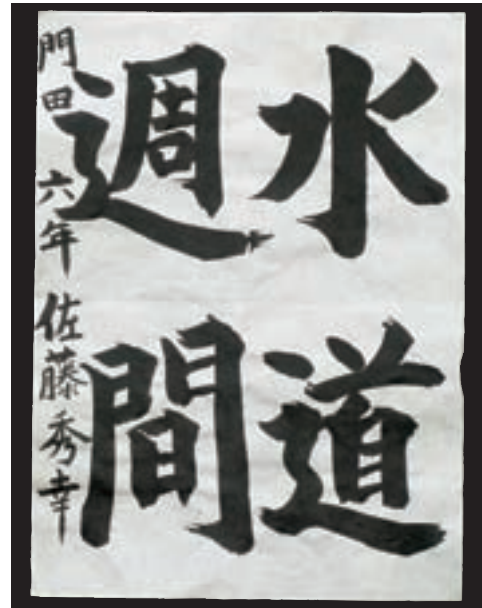 水道
週間
門田 六年 佐藤秀幸